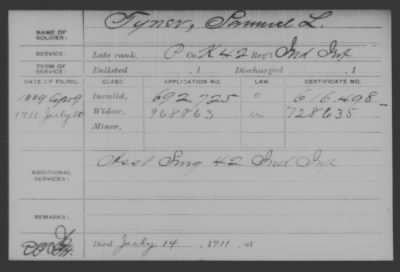 NAME OF SOLDIER: Tyner, Samuel L.
SERVICE: Late rank, P Co. K 42 Reg't Ind Inf
TERM OF SERVICE: Enlisted , 1 Discharged , 1
DATE OF FILING. CLASS. APPLICATION NO. LAW. CERTIFICATE NO.
1889 Invalid, 692.725 616.498
1911 July Widow, 968863 728635
Minor,
ADDITIONAL SERVICES: Asst Surg 42 Ind Inf
REMARKS:
Died July 14 , 1911, at